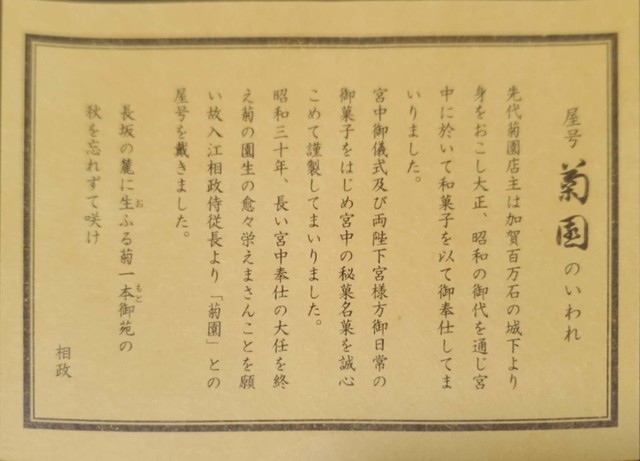 屋号 菊園 のいわれ
先代菊園店主は加賀百万石の城下より
身をおこし大正、昭和の御代を通じ宮
中に於いて和菓子を以て御奉仕してま
いりました。
宮中御儀式及び両陛下宮様方御日常の
御菓子をはじめ宮中の秘菓名菓を誠心
こめて謹製してまいりました。
昭和三十年、長い宮中奉仕の大任を終
え菊の園生の愈々栄えまさんことを願
い故入江相政侍従長より「菊園」との
屋号を戴きました。
長坂の麓に生ふる菊一本御苑の
お
もと
秋を忘れずて咲け
相政